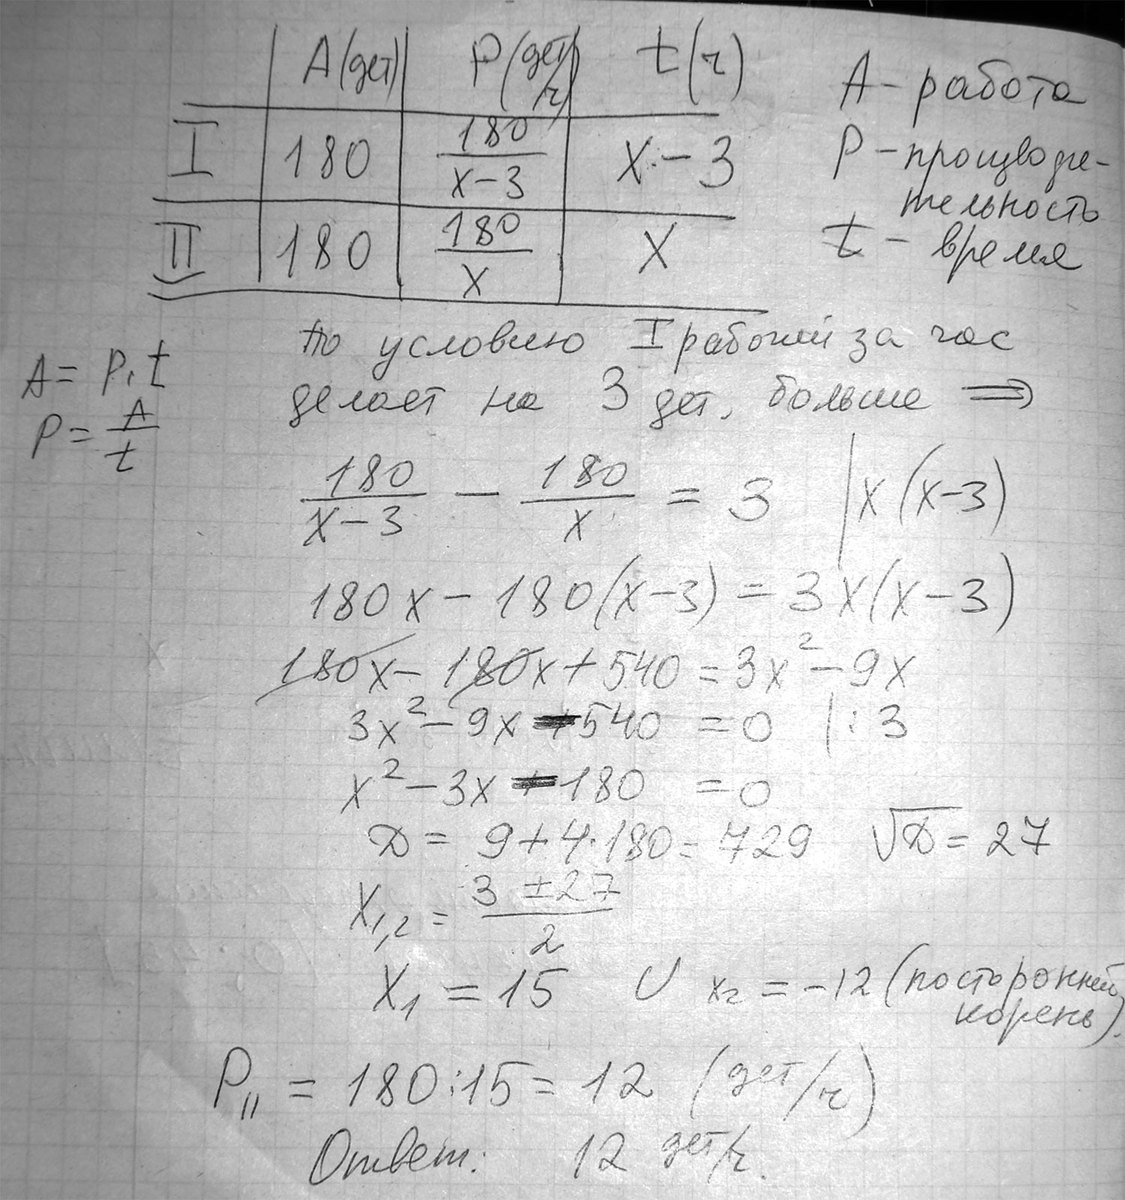 A(дет) P(дет/ч) t(ч)
I 180 180/(x-3) x-3
II 180 180/x x
A - работа
P - производи-
тельность
t - время
A = P·t
P = A/t
По условию I рабочий за час
делает на 3 дет. больше ⇒
180/(x-3) - 180/x = 3 | x(x-3)
180x - 180(x-3) = 3x(x-3)
180x - 180x + 540 = 3x² - 9x
3x² - 9x - 540 = 0 | : 3
x² - 3x - 180 = 0
D = 9 + 4·180 = 729 √D = 27
x₁,₂ = (3 ± 27)/2
x₁ = 15 ∪ x₂ = -12 (посторонний
корень).
P_II = 180:15 = 12 (дет/ч)
Ответ: 12 дет/ч.